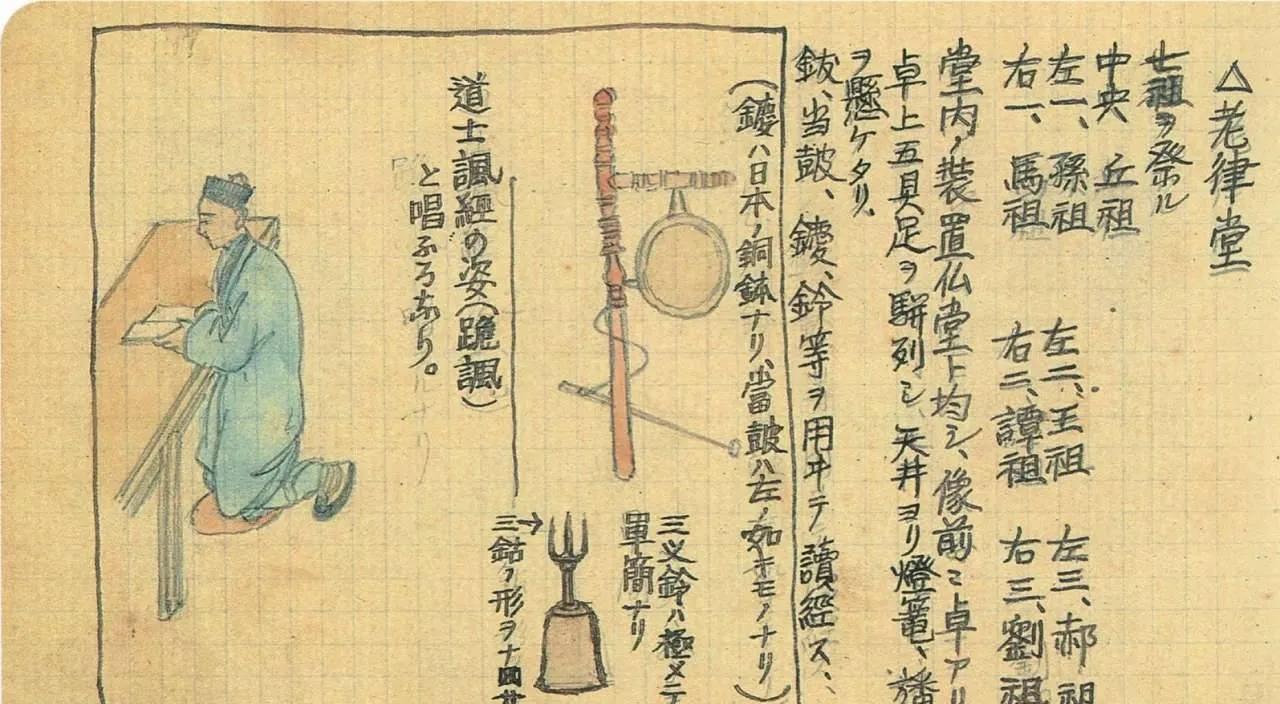 △老律堂
七祖ヲ祭ル
中央 丘祖
左一、孫祖 左二、王祖 左三、郝祖
右一、馬祖 右二、譚祖 右三、劉祖
堂内ノ装置仏堂ト均シ、像前ニ卓アリ
卓上五具足ヲ駢列シ天井ヨリ燈篭、旛
ヲ懸ケタリ、
鈸、当鼓、鑁、鈴等ヲ用ヰテ讀経ス、
(鑁ハ日本ノ銅鉢ナリ、當鼓ハ左ノ如キモノナリ)
三叉鈴ハ極メテ
単簡ナリ
三鈷ノ形ヲナ
道士諷經の姿(跪諷)
と唱ふるなり。